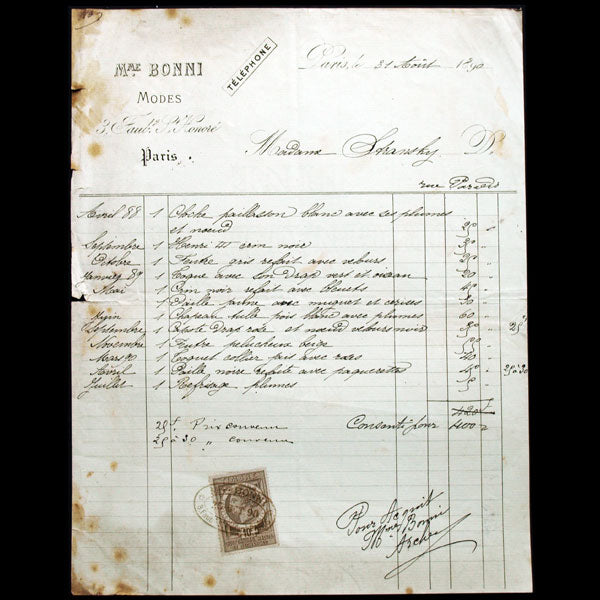 Mme BONNI
TÉLÉPHONE
Paris, le 31 Août 1890
MODES
3, Faubg St Honoré
Paris
Madame Stransky D.
rue Paradis
Avril 88 1 Cloche paillasson blanc avec ses plumes
et noeud
Septembre 1 Henri III crin noir
Octobre 1 Feutre gris refait avec velours 30 "
Janvier 89 1 Toque avec son drap vert et
Mai 1 Crin noir refait avec bleuets 40 "
1 Paille jaune avec muguet et cerises 50 "
Juin 1 Chapeau tulle pois blanc avec plumes 60 "
Septembre 1 drap rose et noeud velours noir 25 f
Novembre 1 Feutre pelucheux beige
Mars 90 1 Toquet collier jais avec roses 40 "
Avril 1 Paille noire refaite avec paquerettes 40 " 25 à 30
Juillet 1 Refrisage plumes
420
25 f Prix convenu Consenti pour 400 "
25 à 30 " convenu
BONNI
90
10
Pour Acquit
Mme Bonni